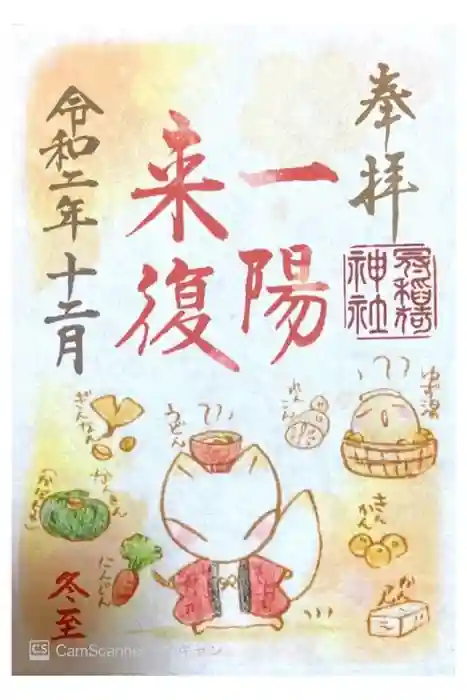 奉拝
稲荷
神社
一陽
来復
令和二年十二月
ゆず湯
れんこん
うどん
ぎんなん
なんきん
(かぼちゃ)
にんじん
きんかん
冬至
CS CamScanner でスキャン